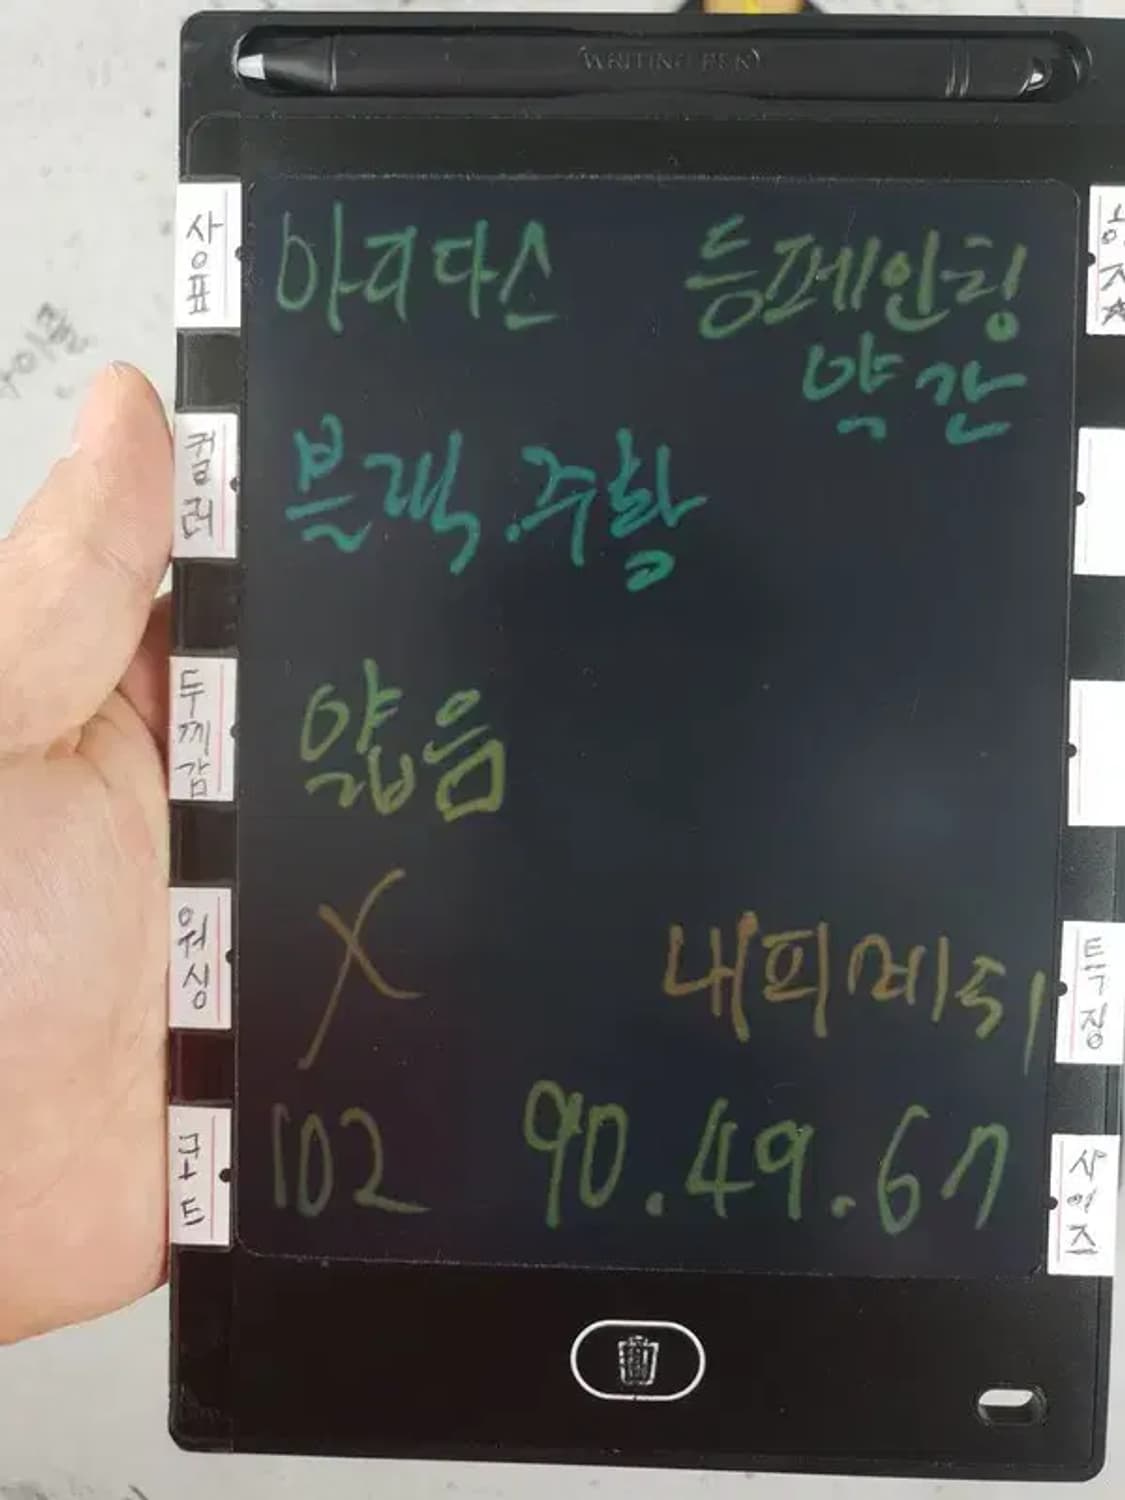 WRITING PEN
상표 아디다스 등페인팅
약간
컬러 블랙.주황
두께감 얇음
워싱 X 내피메쉬 특징
코드 102 90.49.67 사이즈